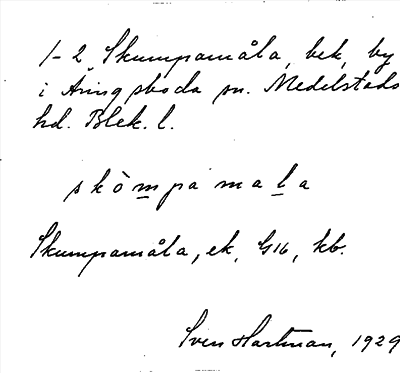 1-2 Skumpamåla, bek, by
i Åringsboda sn. Medelstads
hd. Blek. l.
skòmpamala
Skumpamåla, ek, G16, kb.
Sven Hartman, 1929